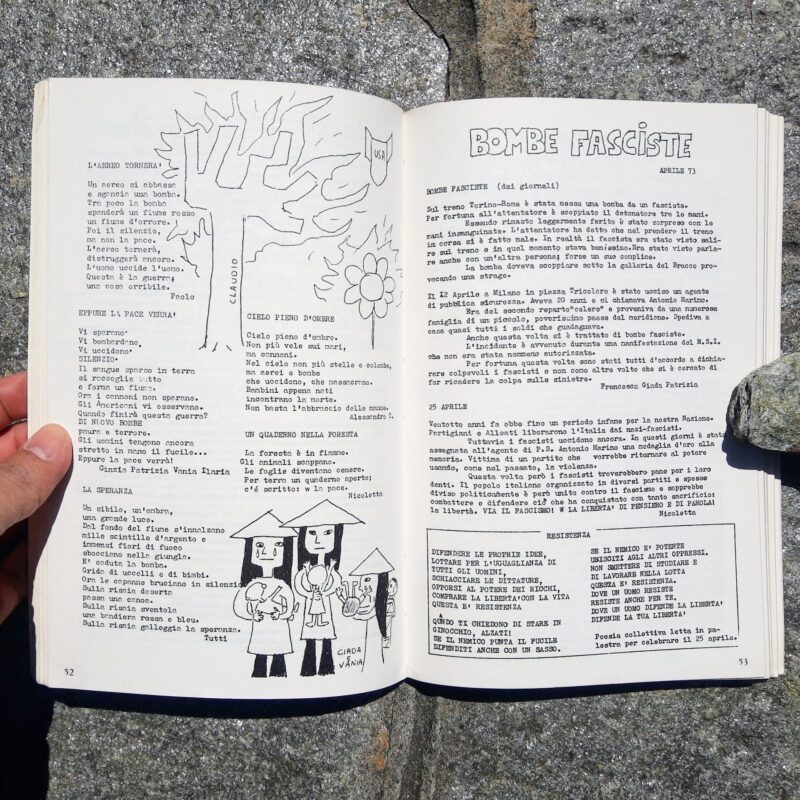 L'AEREO TORNERA'
Un aereo si abbassa
e sgancia una bomba.
Tra poco la bomba
spanderà un fiume rosso
un fiume d'orrore.
Poi il silenzio,
ma non la pace.
L'aereo tornerà,
distruggerà ancora.
L'uomo uccide l'uomo.
Questa è la guerra;
una cosa orribile.
Paolo
USA
CLAUDIO
EPPURE LA PACE VERRA'
Vi sparano
Vi bombardano,
Vi uccidono
SILENZIO
Il sangue sparso in terra
si raccoglie tutto
e forma un fiume.
Ora i cannoni non sparano.
Gli Americani vi osservano.
Quando finirà questa guerra?
DI NUOVO BOMBE
paura e terrore.
Gli uomini tengono ancora
stretto in mano il fucile...
Eppure la pace verrà!
Cinzia Patrizia Vania Ilaria
LA SPERANZA
Un sibilo, un'ombra,
una grande luce.
Dal fondo del fiume s'innalzano
mille scintille d'argento e
immensi fiori di fuoco
sbocciano nella giungla.
E' caduta la bomba.
Grida di uccelli e di bimbi.
Ora le capanne bruciano in silenzio
Sulla risaia deserta
passa una canoa.
Sulla risaia sventola
una bandiera rossa e blu.
Sulla risaia galleggia la speranza.
Tutti
CIELO PIENO D'OMBRE
Cielo pieno d'ombre.
Non più vele sui mari,
ma cannoni.
Nel cielo non più stelle e colombe,
ma aerei e bombe
che uccidono, che massacrano.
Bambini appena nati
incontrano la morte.
Non basta l'abbraccio delle mamme.
Alessandro I.
UN QUADERNO NELLA FORESTA
La foresta è in fiamme.
Gli animali scappano.
Le foglie diventano cenere.
Per terra un quaderno aperto;
c'è scritto: w la pace.
Nicoletta
GIADA
VANIA
52
BOMBE FASCISTE
APRILE 73
BOMBE FASCISTE (dai giornali)
Sul treno Torino-Roma è stata messa una bomba da un fascista.
Per fortuna all'attentatore è scoppiato il detonatore tra le mani.
Essendo rimasto leggermente ferito è stato sorpreso con le
mani insanguinate. L'attentatore ha detto che nel prendere il treno
in corsa si è fatto male. In realtà il fascista era stato visto sali-
re sul treno e in quel momento stava bonissimo. Era stato visto parla-
re anche con un'altra persona; forse un suo complice.
La bomba doveva scoppiare sotto la galleria del Bracco pro-
vocando una strage.
Il 12 Aprile a Milano in piazza Tricolore è stato ucciso un agente
di pubblica sicurezza. Aveva 20 anni e si chiamava Antonio Marino.
Era del secondo reparto"celere" e proveniva da una numerosa
famiglia di un piccolo, poverissimo paese del meridione. Spediva a
casa quasi tutti i soldi che guadagnava.
Anche questa volta si è trattato di bombe fasciste.
L'incidente è avvenuto durante una manifestazione del M.S.I.
che non era stata nemmeno autorizzata.
Per fortuna questa volta sono stati tutti d'accordo a dichia-
rare colpevoli i fascisti e non come altre volte che si è cercato di
far ricadere la colpa sulle sinistre.
Francesca Giada Patrizia
25 APRILE
Ventotto anni fa ebbe fino un periodo infame per la nostra Nazione.
Partigiani e Alleati liberarono l'Italia dai nazi-fascisti.
Tuttavia i fascisti uccidono ancora. In questi giorni è stata
assegnata all'agente di P.S. Antonio Marino una medaglia d'oro alla
memoria. Vittima di un partito che vorrebbe ritornare al potere
usando, come nel passato, la violenza.
Questa volta però i fascisti troverebbero pane per i loro
denti. Il popolo italiano organizzato in diversi partiti e spesso
diviso politicamente è però unito contro il fascismo e saprebbe
combattere e difendere ciò che ha conquistato con tanto sacrificio:
la libertà. VIA IL FASCISMO! W LA LIBERTA' DI PENSIERO E DI PAROLA!
Nicoletta
RESISTENZA
DIFENDERE LE PROPRIE IDEE,
LOTTARE PER L'UGUAGLIANZA DI
TUTTI GLI UOMINI,
SCHIACCIARE LE DITTATURE,
OPPORSI AL POTERE DEI RICCHI,
COMPRARE LA LIBERTA'CON LA VITA
QUESTA E' RESISTENZA
QUNDO TI CHIEDONO DI STARE IN
GINOCCHIO, ALZATI!
SE IL NEMICO PUNTA IL FUCILE
DIFENDITI ANCHE CON UN SASSO.
SE IL NEMICO E' POTENTE
UNISCITI AGLI ALTRI OPPRESSI.
NON SMETTERE DI STUDIARE E
DI LAVORARE NELLA LOTTA
QUESTA E' RESISTENZA.
DOVE UN UOMO RESISTE
RESISTE ANCHE PER TE.
DOVE UN UOMO DIFENDE LA LIBERTA'
DIFENDE LA TUA LIBERTA'
Poesia collettiva letta in pa-
lestra per celebrare il 25 aprile.
53